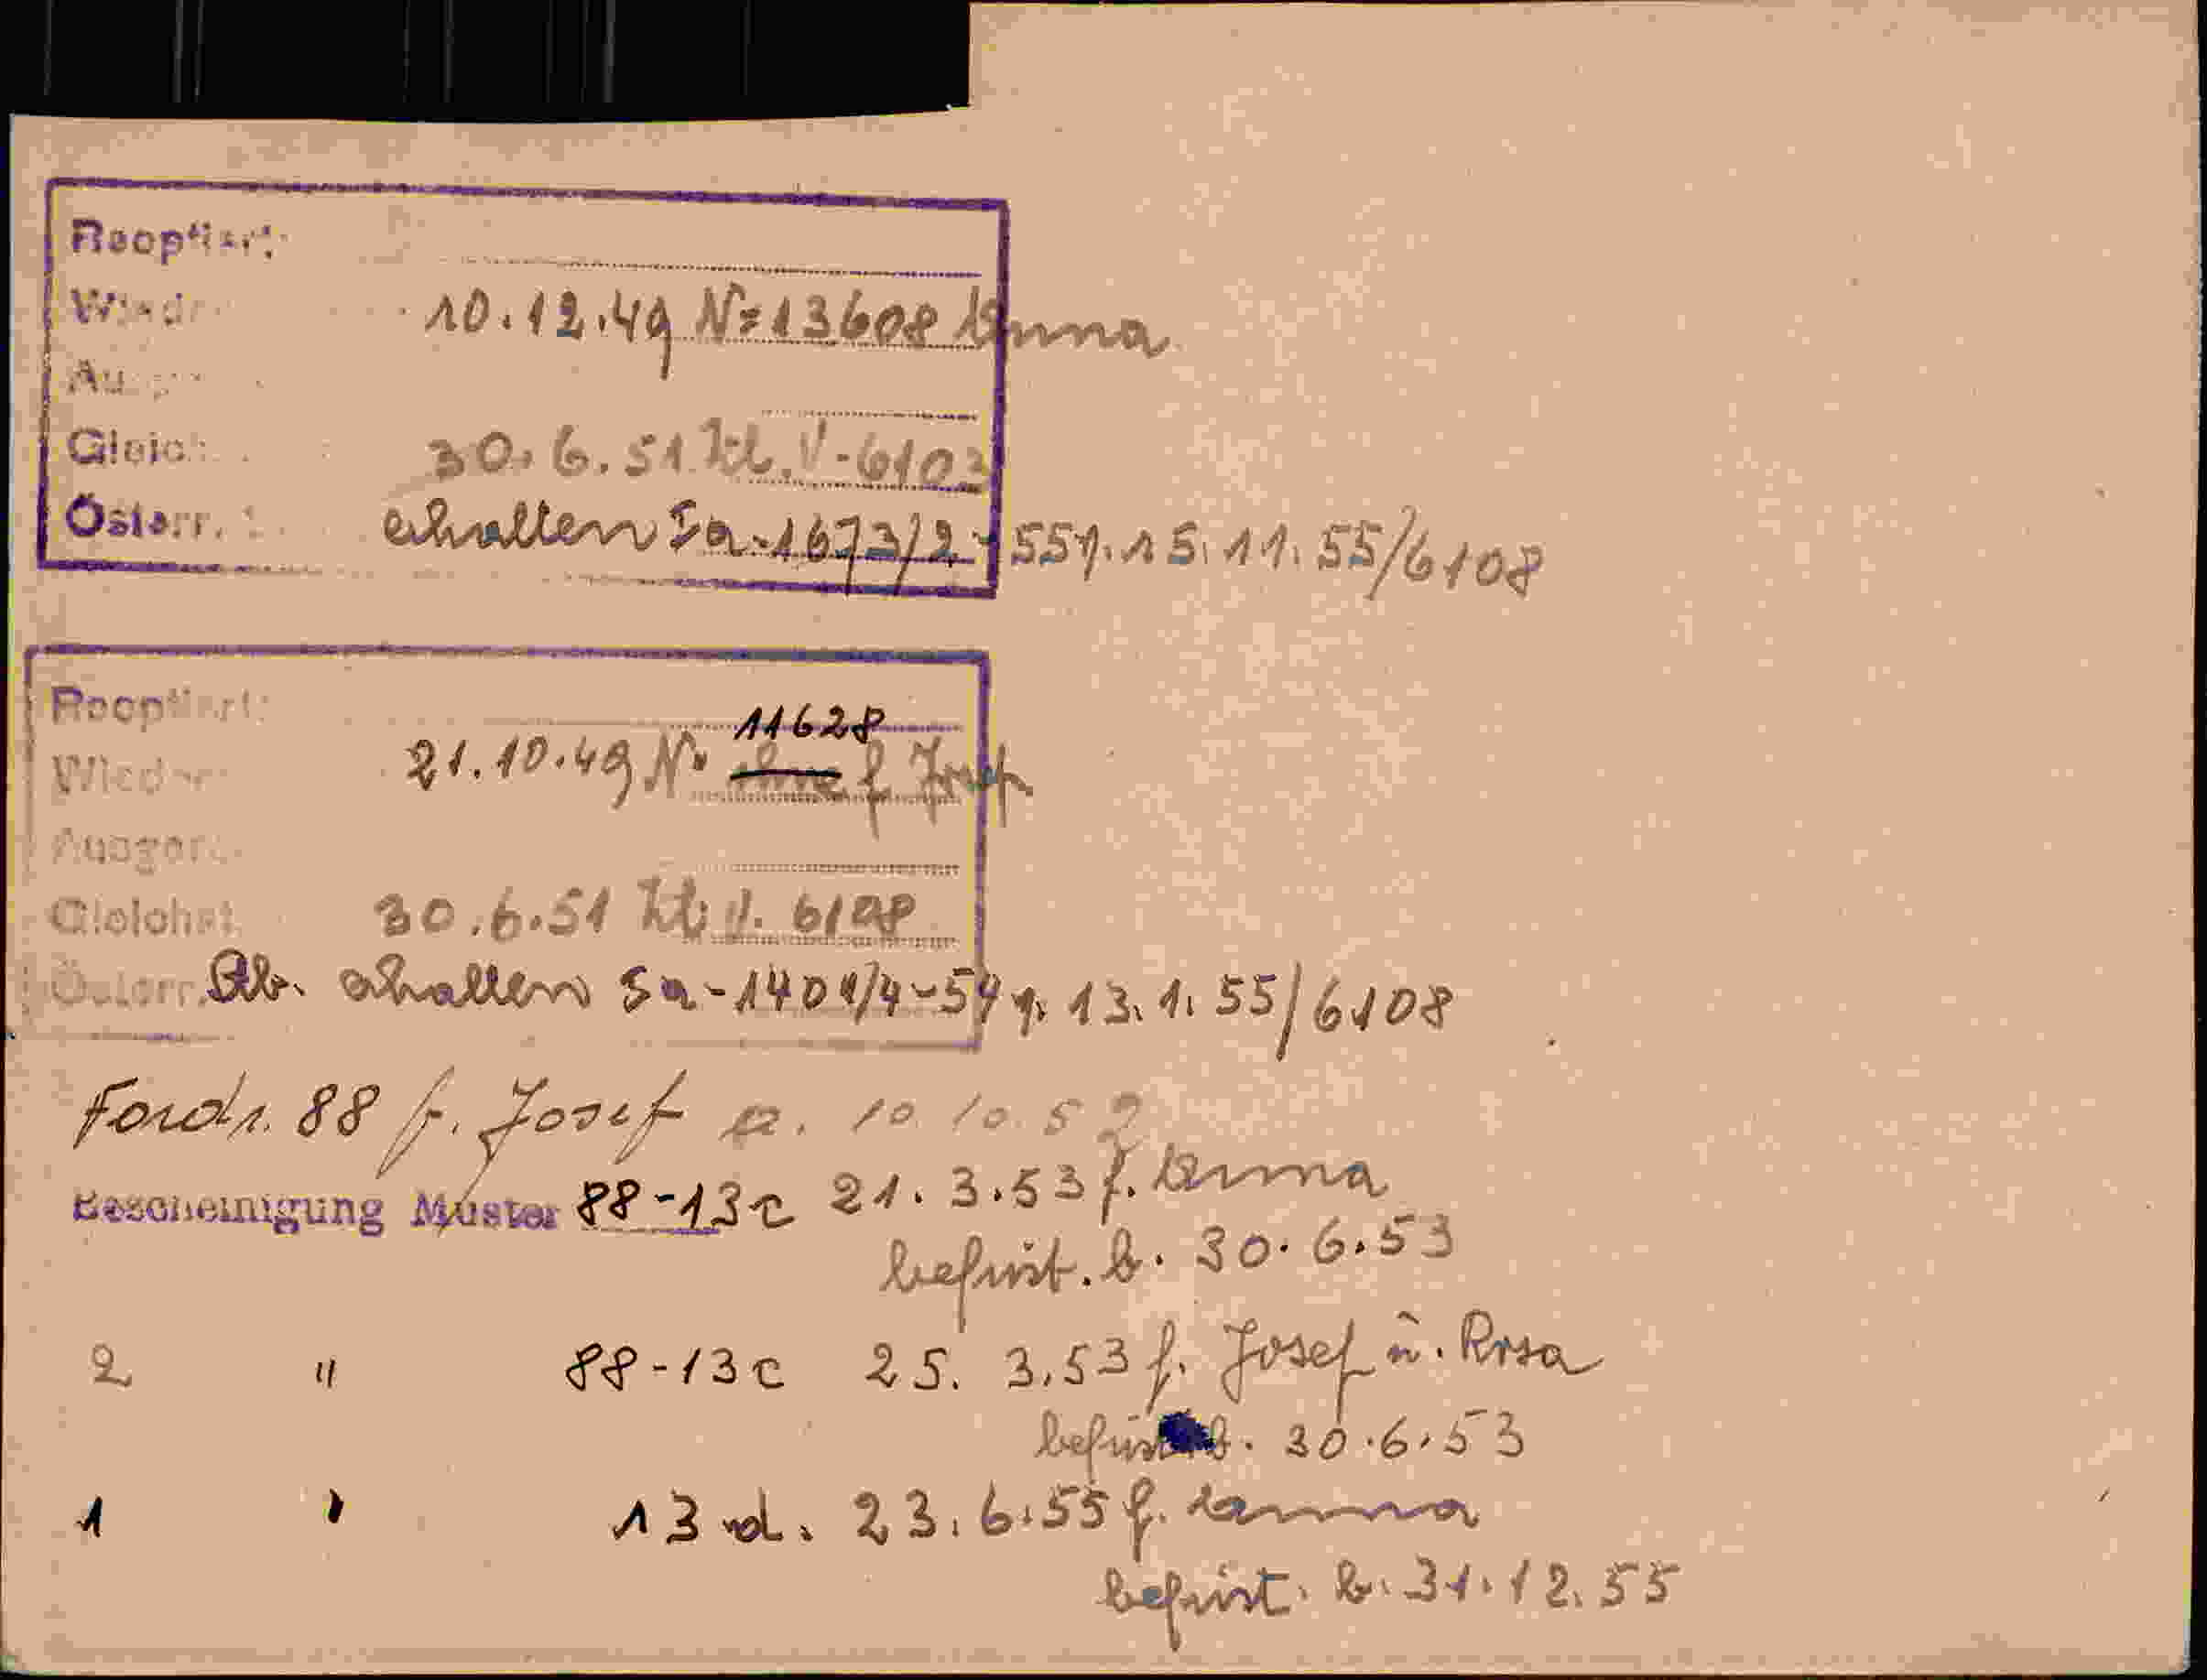 Reoptiert:
Wieder 10.12.49 N= 13608 Anna
Gleich 30.6.51 Kl. V-6103
Österr. erhalten Sa-1673/2-55 v. 15.11.55/6108
Reoptiert: 11628
Wieder 21.10.49 Nr ohne f Josef
Ausger.
Gleichst. 30.6.51 Kl. V. 6108
Österr. Stb. erhalten Sa-1401/4-54 v. 13.1.55/6108
Fordr. 88 f. Josef a. 10.10.52
Bescheinigung Muster 88-13c 21.3.53 f. Anna
befrist. b. 30.6.53
2 " 88-13c 25.3.53 f. Josef u. Rosa
befrist b. 30.6.53
1 " 13 d. 23.6.55 f. Anna
befrist. b. 31.12.55